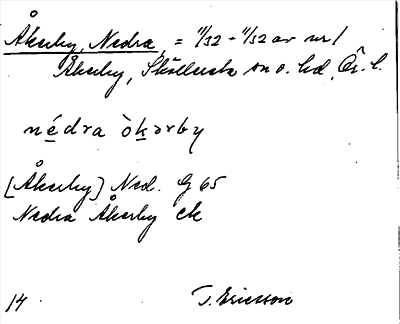 Åkerby, Nedra, = 11/32 + 11/32 av nr 1
Åkerby, Sköllersta sn o. hd, Ör. l.
nédra òkərby
[Åkerby] Ned. G 65
Nedra Åkerby ek
14 T. Ericsson